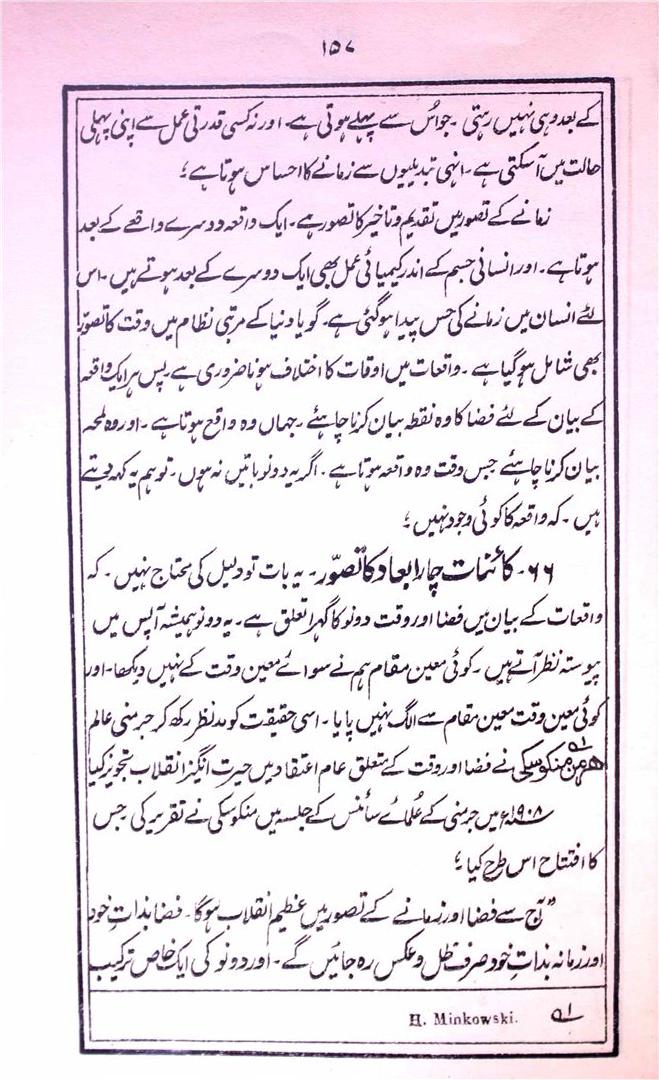 ۱۵۷
کے بعد وہی نہیں رہتی ۔ جو اُس سے پہلے ہوتی ہے ۔ اور نہ کسی قدرتی عمل سے اپنی پہلی
حالت میں آسکتی ہے ۔ انہی تبدیلیوں سے زمانے کا احساس ہوتا ہے ؛
زمانے کے تصور میں تقدیم و تاخیر کا تصور ہے ۔ ایک واقعہ دوسرے واقعے کے بعد
ہوتا ہے ۔ اور انسانی جسم کے اندر کیمیائی عمل بھی ایک دوسرے کے بعد ہوتے ہیں ۔ اس
لئے انسان میں زمانے کی حس پیدا ہوگئی ہے ۔ گویا دنیا کے مرتبی نظام میں وقت کا تصوّر
بھی شامل ہوگیا ہے ۔ واقعات میں اوقات کا اختلاف ہونا ضروری ہے ۔ پس ہر ایک واقعہ
کے بیان کے لئے فضا کا وہ نقطہ بیان کرنا چاہئے ۔ جہاں وہ واقع ہوتا ہے ۔ اور وہ لمحہ
بیان کرنا چاہئے جس وقت وہ واقعہ ہوتا ہے ۔ اگر یہ دونو باتیں نہ ہوں ۔ تو ہم یہ کہہ دیتے
ہیں ۔ کہ واقعہ کا کوئی وجود نہیں ؛
۶۶ ۔ کائنات چار ابعاد کا تصوّر ۔ یہ بات تو دلیل کی محتاج نہیں ۔ کہ
واقعات کے بیان میں فضا اور وقت دونو کا گہرا تعلق ہے ۔ یہ دونو ہمیشہ آپس میں
پیوستہ نظر آتے ہیں ۔ کوئی معین مقام ہم نے سوائے معین وقت کے نہیں دیکھا ۔ اور
کوئی معین وقت معین مقام سے الگ نہیں پایا ۔ اسی حقیقت کو مدنظر رکھ کر جرمنی عالم
ھرمن منکوسکی ۹۱ نے فضا اور وقت کے متعلق عام اعتقاد میں حیرت انگیز انقلاب تجویز کیا
۱۹۰۸ء میں جرمنی کے عُلمائے سائنس کے جلسہ میں منکوسکی نے تقریر کی جس
کا افتتاح اس طرح کیا ؛
"آج سے فضا اور زمانے کے تصور میں عظیم انقلاب ہوگا ۔ فضا بذاتِ خود
اور زمانہ بذاتِ خود صرف ظل و عکس رہ جائیں گے ۔ اور دونو کی ایک خاص ترکیب
۹۱ H. Minkowski.